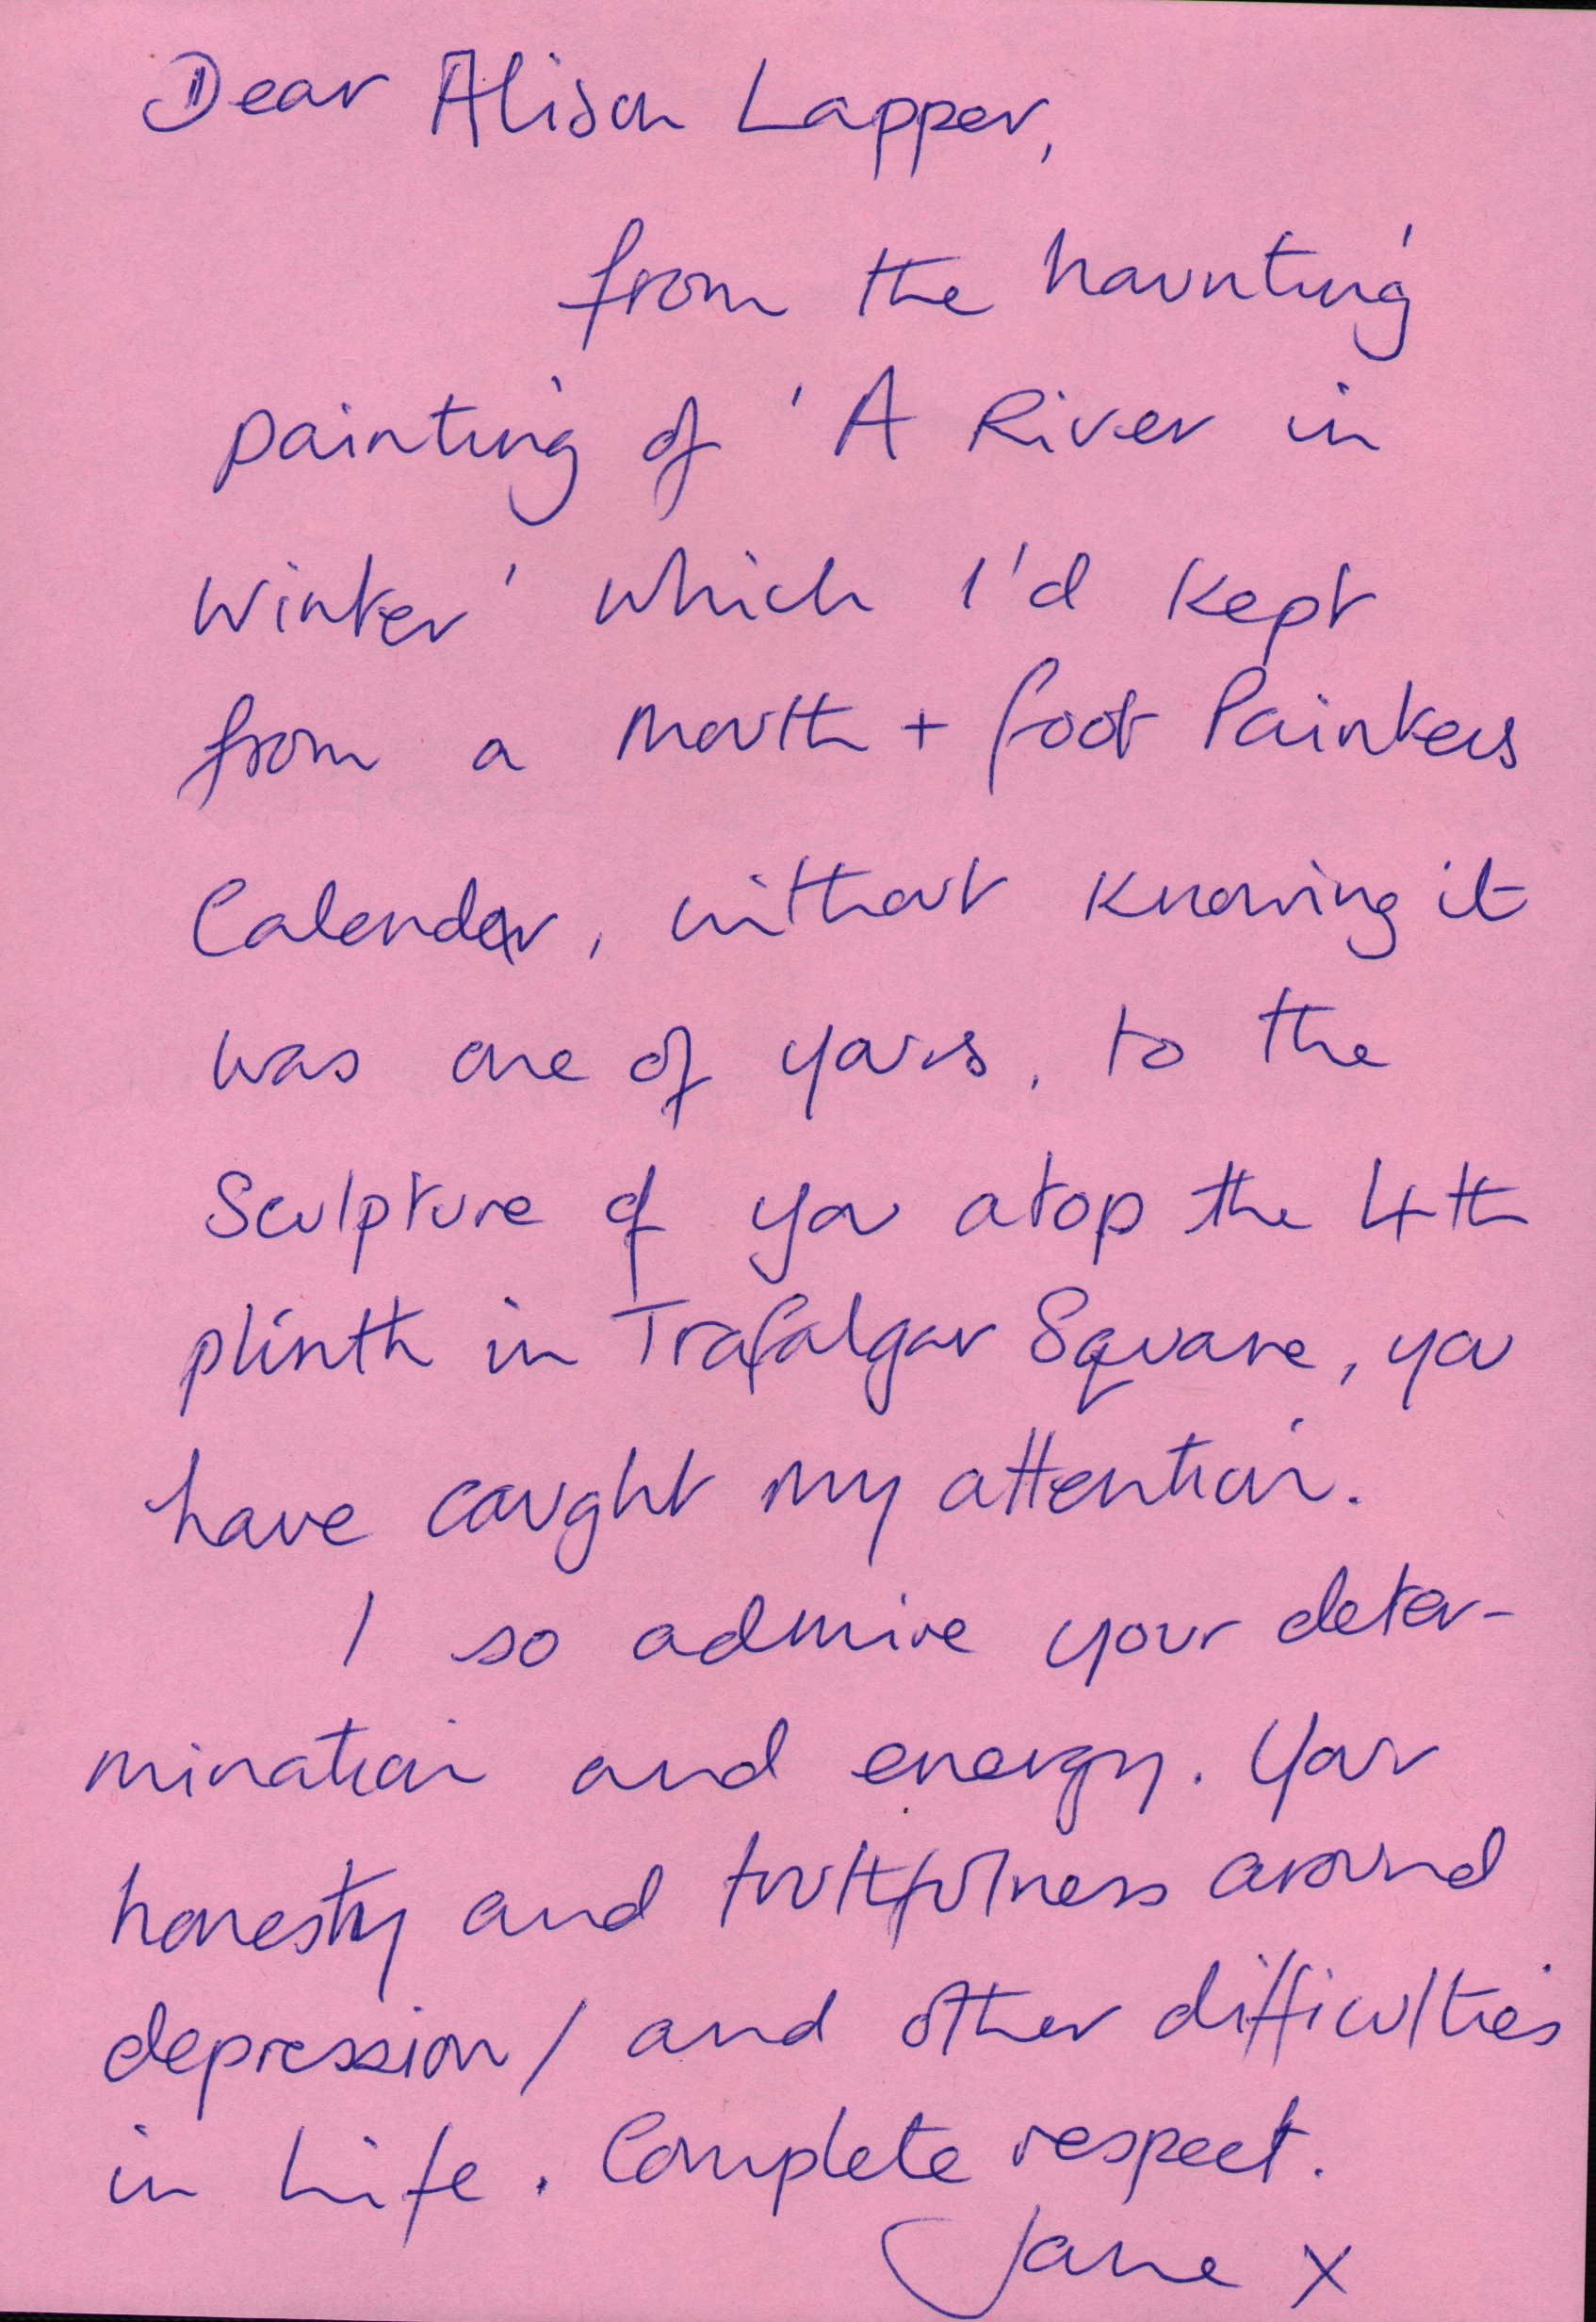 Dear Alison Lapper,
from the haunting
painting of 'A River in
Winter' which I'd kept
from a Mouth + Foot Painters
Calendar, without knowing it
was one of yours, to the
Sculpture of you atop the 4th
plinth in Trafalgar Square, you
have caught my attention.
I so admire your deter-
mination and energy. Your
honesty and truthfulness around
depression/ and other difficulties
in Life. Complete respect.
Jane x